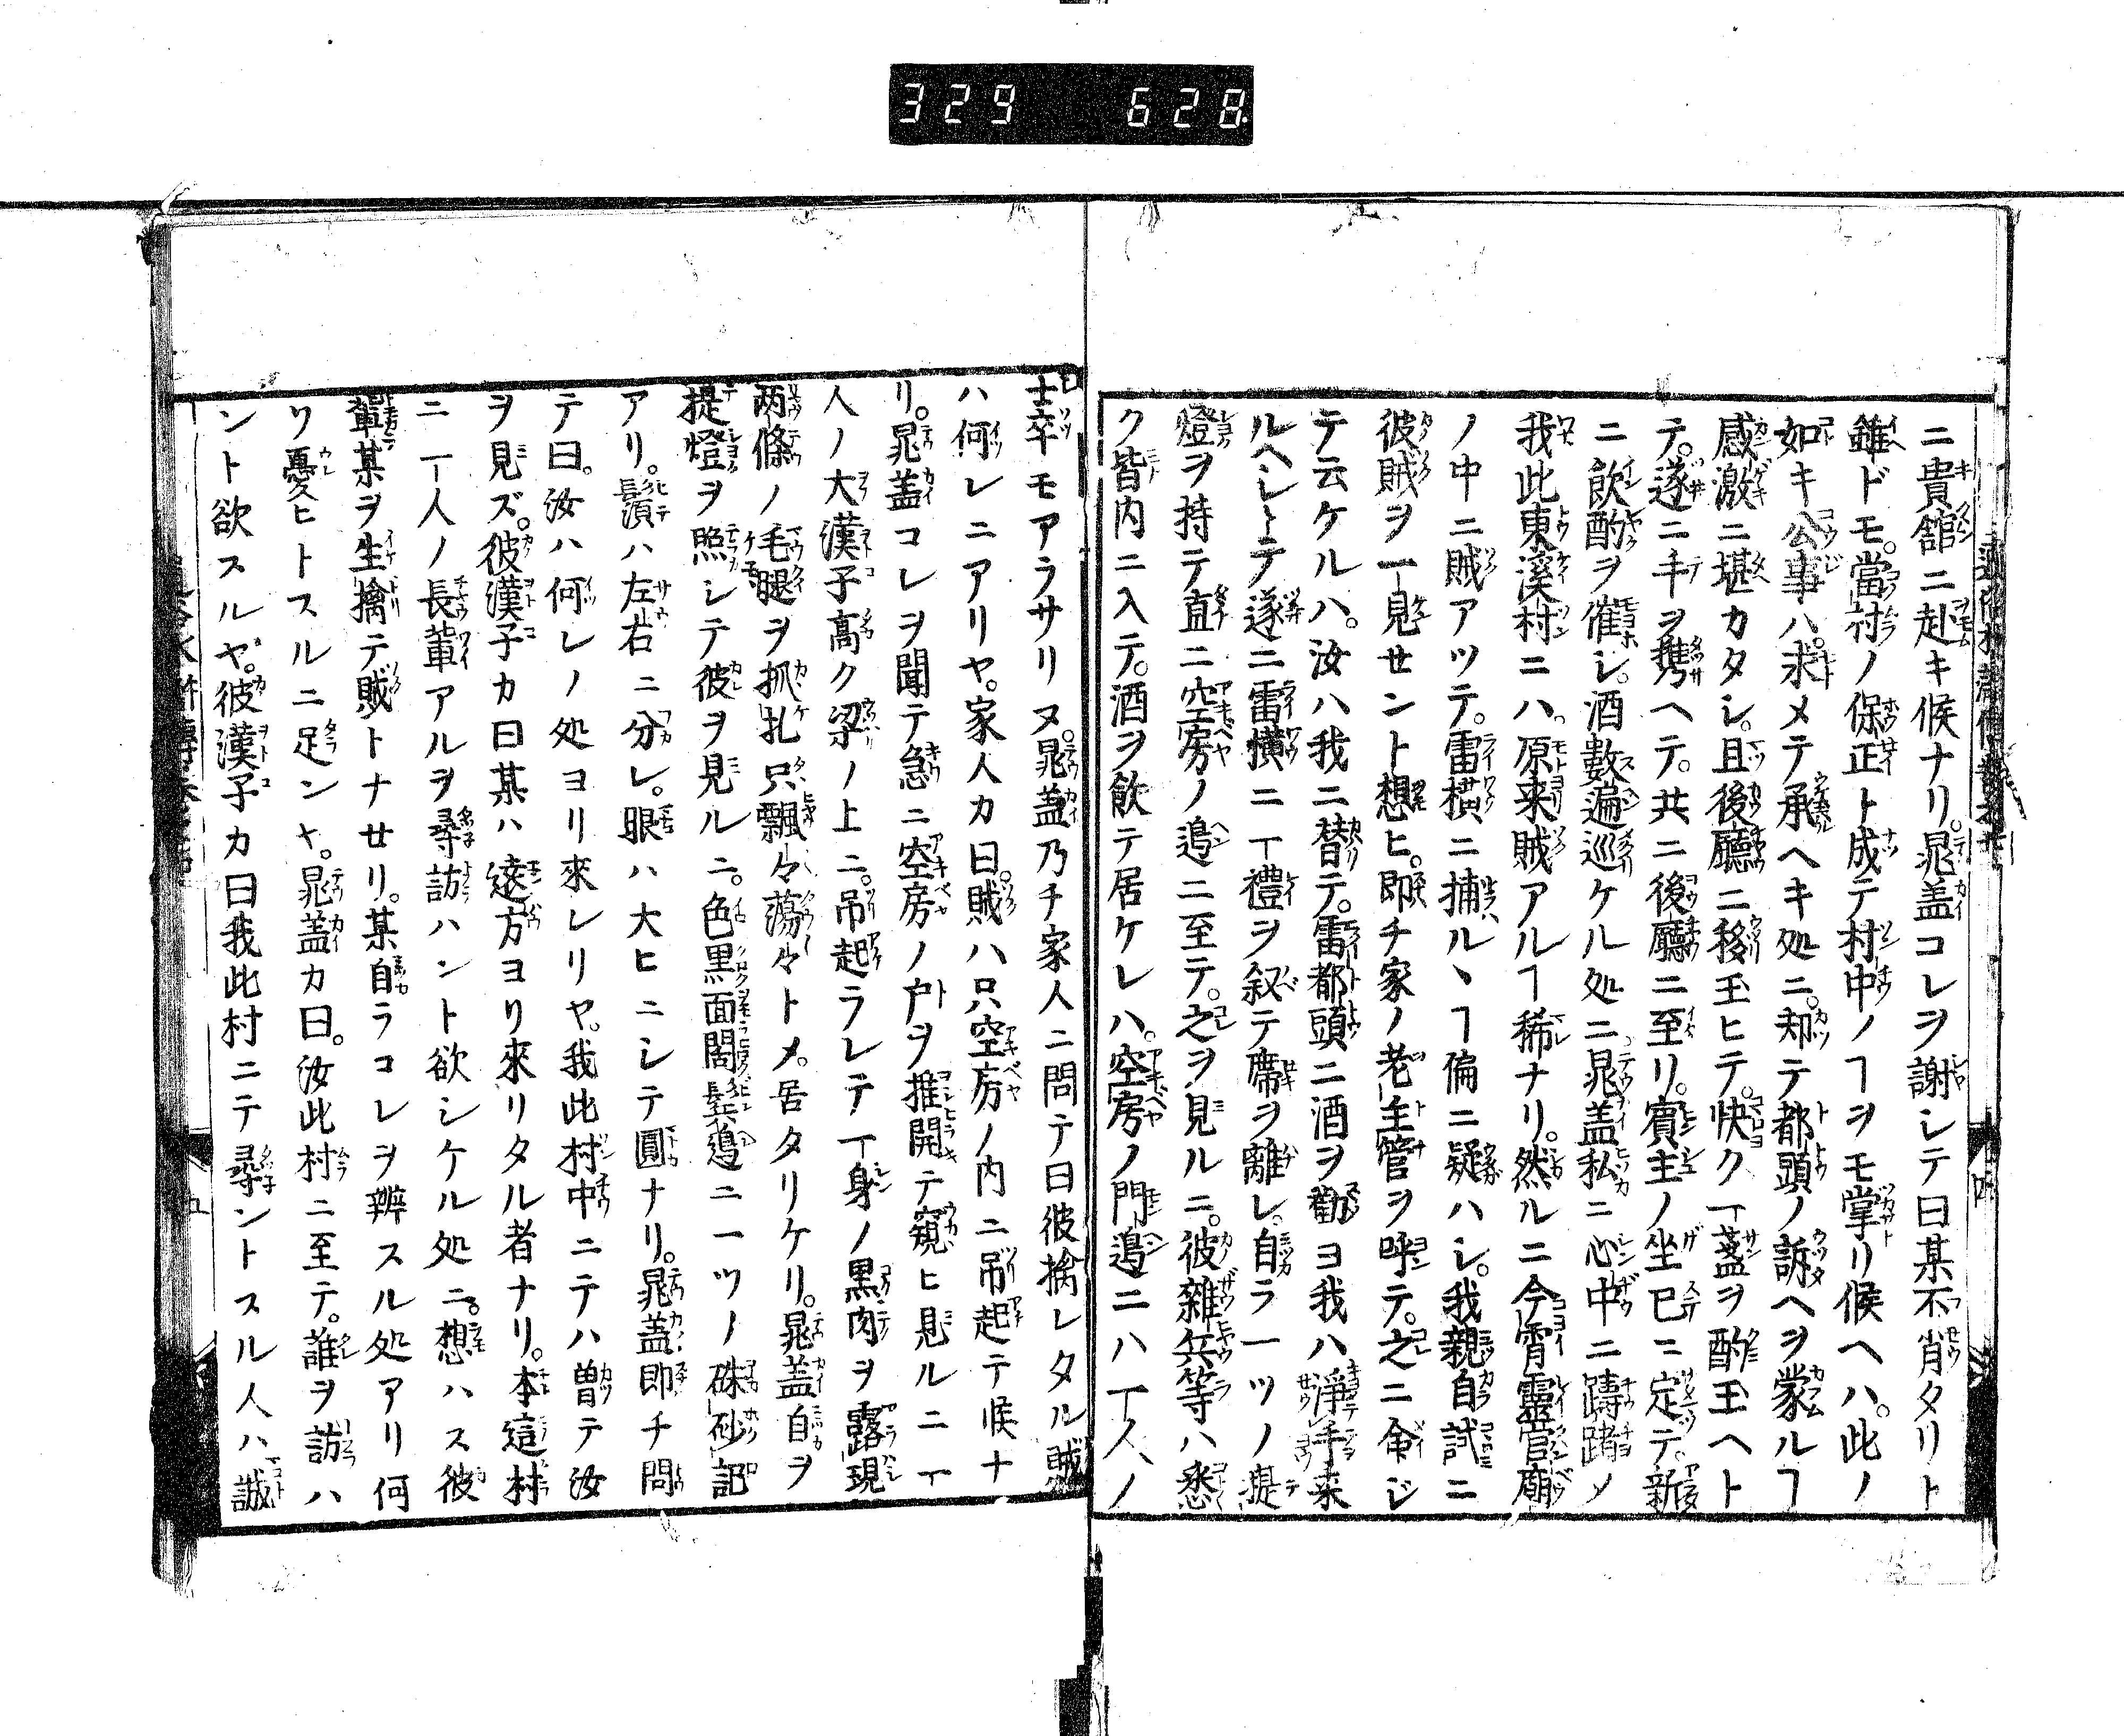 329 628
ニ貴舘ニ赴キ候ナリ。晁盖コレヲ謝シテ曰某不肖タリト
雖ドモ。當村ノ保正ト成テ村中ノヿヲモ掌リ候ヘハ。此ノ
如キ公事ハ。求メテ承ヘキ処ニ。却テ都頭ノ訴ヘヲ蒙ルヿ
感激ニ堪カタシ。且後廳ニ移玉ヒテ。快ク一盞ヲ酌玉ヘト
テ。遂ニ手ヲ携ヘテ。共ニ後廳ニ至リ。賓主ノ坐已ニ定テ。新
ニ飲酌ヲ催シ。酒數遍巡ケル処ニ晁盖私ニ心中ニ躊躇メ
我此東溪村ニハ。原来賊アルヿ稀ナリ。然ルニ今宵靈官廟
ノ中ニ賊アツテ。雷横ニ捕ルヽヿ偏ニ疑ハシ。我親自試ニ
彼賊ヲ一見せント想ヒ。即チ家ノ老主管ヲ呼テ。之ニ命ジ
テ云ケルハ。汝ハ我ニ替テ。雷都頭ニ酒ヲ勸ヨ我ハ淨手来
ルヘシトテ遂ニ雷横ニ一禮ヲ叙テ席ヲ離レ。自ラ一ツノ提
燈ヲ持テ直ニ空房ノ邉ニ至テ。之ヲ見ルニ。彼雜兵等ハ悉
ク皆内ニ入テ。酒ヲ飲テ居ケレハ。空房ノ門邉ニハ一人ノ
士卒モアラサリヌ。晁盖乃チ家人ニ問テ曰彼擒レタル賊
ハ何レニアリヤ。家人カ曰。賊ハ只空房ノ内ニ吊起テ候ナ
リ。晁盖コレヲ聞テ急ニ空房ノ戸ヲ推開テ窺ヒ見ルニ一
人ノ大漢子高ク梁ノ上ニ。吊起ラレテ一身ノ黒肉ヲ露現
两條ノ毛腿ヲ抓扎只飄々蕩々トメ。居タリケリ。晁盖自ヲ
提燈ヲ照シテ彼ヲ見ルニ。色黒面闊鬂邉ニ一ツノ硃砂記
アリ。鬚ハ左右ニ分レ。眼ハ大ヒニシテ圓ナリ。晁盖即チ問
テ曰。汝ハ何レノ処ヨリ來レリヤ。我此村中ニテハ曽テ汝
ヲ見ズ。彼漢子カ曰某ハ遠方ヨリ來リタル者ナリ。本這村
ニ一人ノ長輩アルヲ尋訪ハント欲シケル処ニ。想ハス彼
輩某ヲ生擒テ賊トナせリ。某自ラコレヲ辨スル処アリ何
ソ憂ヒトスルニ足ンヤ。晁盖カ曰。汝此村ニ至テ。誰ヲ訪ハ
ント欲スルヤ。彼漢子カ曰我此村ニテ尋ントスル人ハ誠